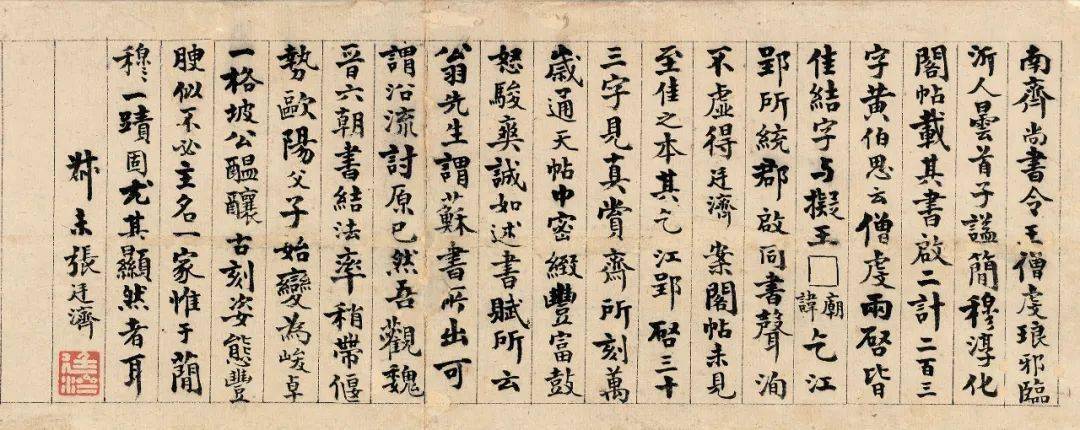 南齊尚書令王僧虔琅邪臨
沂人曇首子謚簡穆淳化
閣帖載其書啟二計二百三
字黃伯思云僧虔兩啓皆
佳結字与擬王□廟諱乞江
郢所統郡啟同書聲洵
不虛得廷濟案閣帖未見
至佳之本其乞江郢啓三十
三字見真賞齋所刻萬
歲通天帖中密緻豐富鼓
怒駿爽誠如述書賦所云
翁先生謂蘇書所出可
謂沿流討原已然吾觀魏
晉六朝書結法率稍帶偃
勢歐陽父子始變為峻卓
一格坡公醞釀古刻姿態豐
腴似不必主名一家惟于簡
穆一蹟固尤其顯然者耳
叔未張廷濟
廷濟